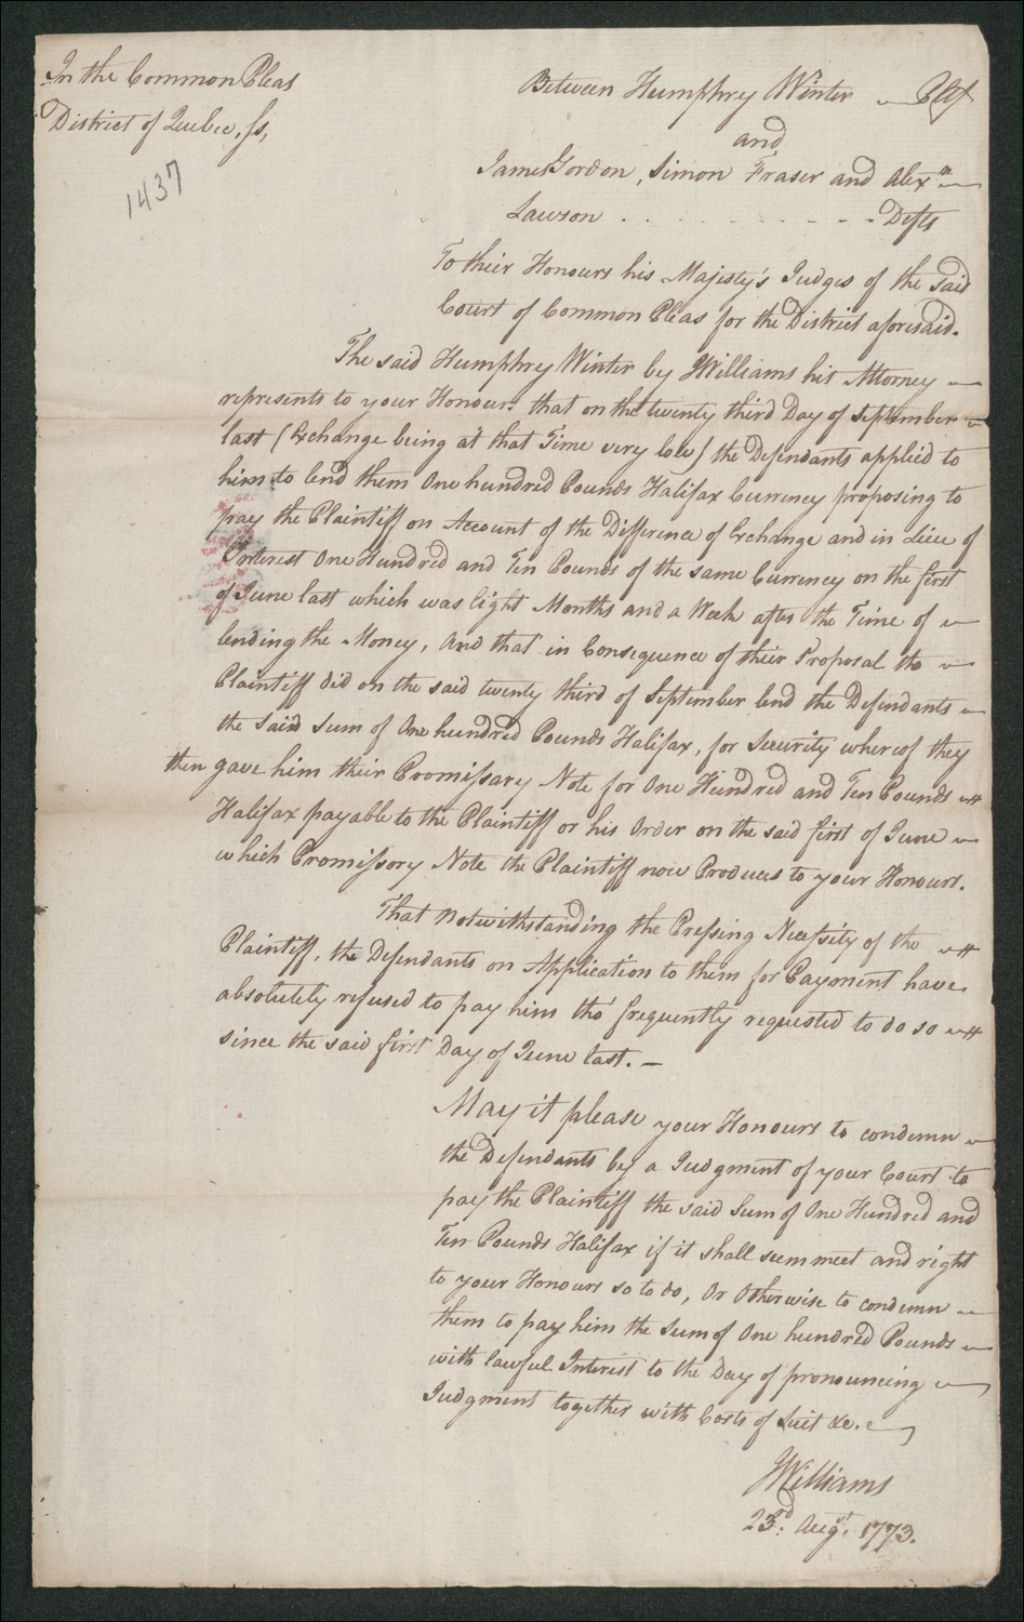 In the Common Pleas
District of Quebec, ſs,
1437
Between Humphry Winter Pltf
and
James Gordon, Simon Fraser and Alexr
Lawson . . . . . . . . . . Defts
To their Honours his Majesty's Judges of the said
Court of Common Pleas for the District aforesaid.
The said Humphry Winter by JWilliams his Attorney
represents to your Honours that on the twenty third Day of September
last (Exchange being at that Time very low) the Defendants applied to
him to lend them One hundred Pounds Halifax Currency proposing to
pay the Plaintiff on Account of the Difference of Exchange and in Lieu of
Interest One Hundred and Ten Pounds of the same Currency on the first
of June last which was Eight Months and a Week after the Time of
lending the Money, And that in Consequence of their Proposal the
Plaintiff did on the said twenty third of September lend the Defendants
the said Sum of One hundred Pounds Halifax, for Security whereof they
then gave him their Promiſsary Note for One Hundred and Ten Pounds
Halifax payable to the Plaintiff or his Order on the said first of June
which Promiſsory Note the Plaintiff now Produces to your Honours.
That Notwithstanding the Preſsing Neceſsity of the
Plaintiff, the Defendants on Application to them for Payment have
absolutely refused to pay him tho' frequently requested to do so
since the said first Day of June last. —
May it please your Honours to condemn
the Defendants by a Judgment of your Court to
pay the Plaintiff the said Sum of One Hundred and
Ten Pounds Halifax if it shall seem meet and right
to your Honours so to do, Or Otherwise to condemn
them to pay him the Sum of One hundred Pounds
with lawful Interest to the Day of pronouncing
Judgment together with Costs of Suit &c.
JWilliams
23rd. Augst. 1773.